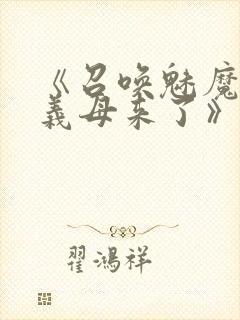 《召唤魅魔
義母来了》
翟鴻祥